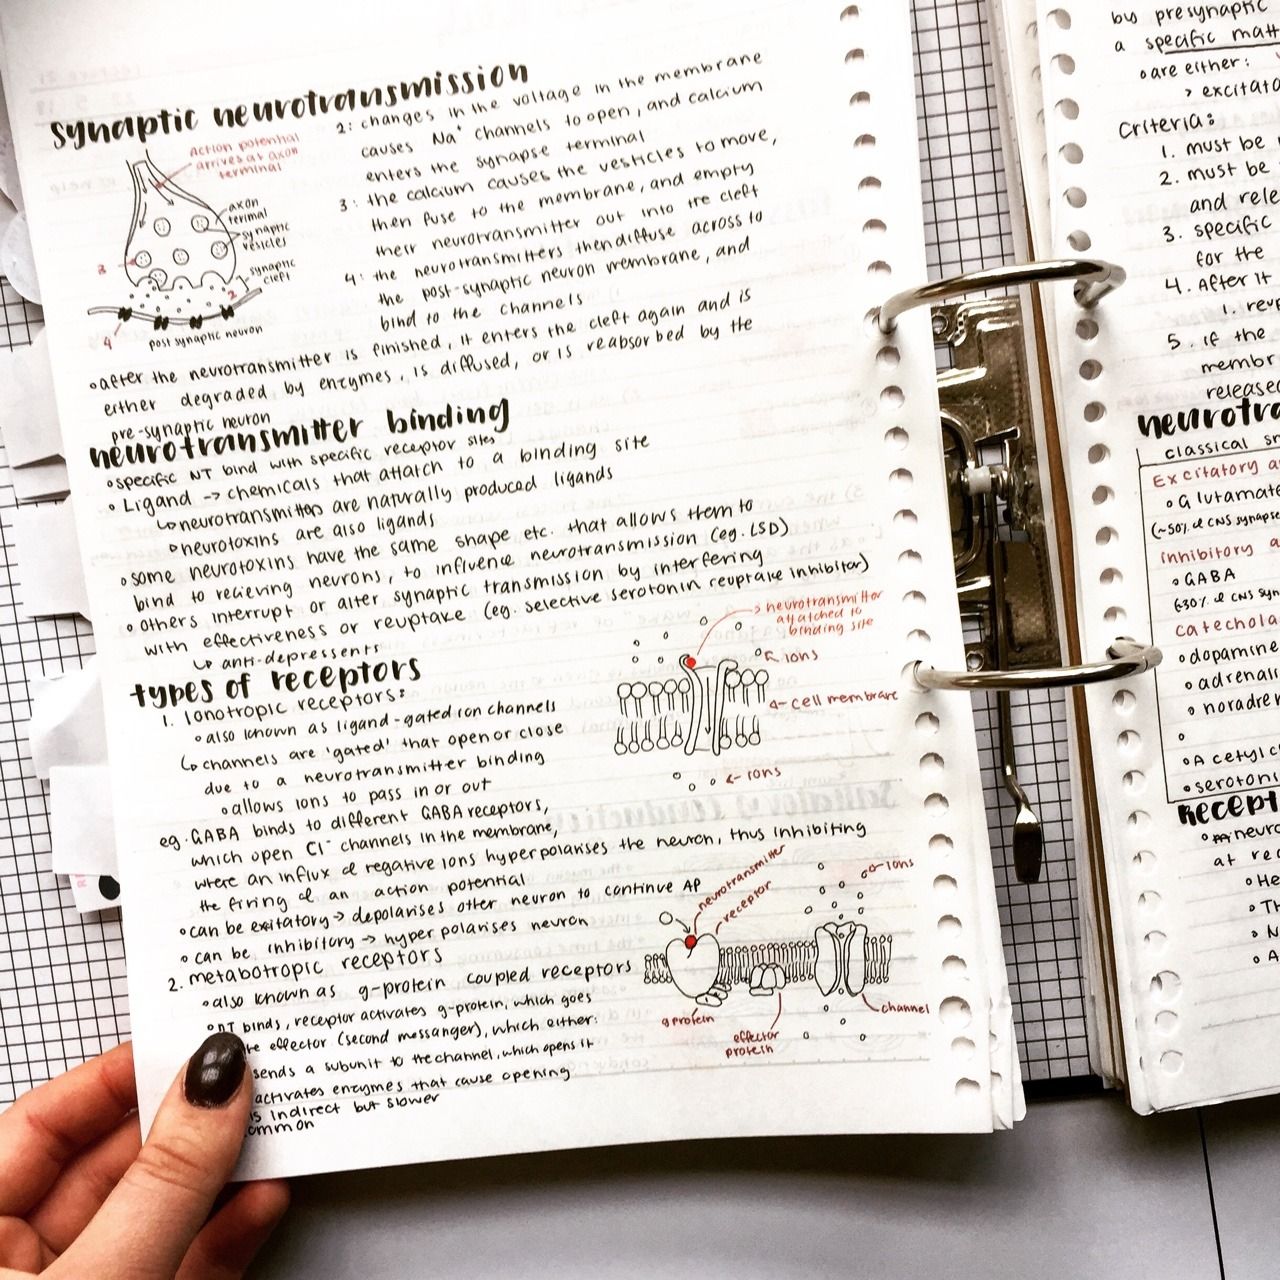 synaptic neurotransmission
Action potential
arrives at axon
terminal
axon
terimal
synaptic
vesicles
synaptic
cleft
3
2
4
post synaptic neuron
2: changes in the voltage in the membrane
causes Na+ channels to open, and calcium
enters the synapse terminal
3: the calcium causes the vesticles to move,
then fuse to the membrane, and empty
their neurotransmitter out into the cleft
4: the neurotransmitters then diffuse across to
the post-synaptic neuron membrane, and
bind to the channels
after the neurotransmitter is finished, it enters the cleft again and is
either degraded by enzymes, is diffused, or is reabsorbed by the
pre-synaptic neuron
neurotransmitter binding
specific NT bind with specific receptor sites
Ligand -> chemicals that attatch to a binding site
neurotransmitters are naturally produced ligands
neurotoxins are also ligands
some neurotoxins have the same shape etc. that allows them to
bind to recieving neurons, to influence neurotransmission (eg. LSD)
others interrupt or alter synaptic transmission by interfering
with effectiveness or reuptake (eg. selective serotonin reuptake inhibitor)
anti-depressents
types of receptors
1. Ionotropic receptors:
also known as ligand-gated ion channels
channels are 'gated' that open or close
due to a neurotransmitter binding
allows ions to pass in or out
eg. GABA binds to different GABA receptors,
which open Cl- channels in the membrane,
where an influx of negative ions hyperpolarises the neuron, thus inhibiting
the firing of an action potential
can be exitatory -> depolarises other neuron to continue AP
can be inhibitory -> hyper polarises neuron
2. metabotropic receptors
also known as g-protein coupled receptors
NT binds, receptor activates g-protein, which goes
effector (second messanger), which either:
sends a subunit to the channel, which opens it
activates enzymes that cause opening
is indirect but slower
neurotransmitter
attatched to
binding site
ions
cell membrane
ions
neurotransmitter
receptor
ions
g protein
effector
protein
channel
by presynaptic
a specific
are either:
Criteria:
1. must be
2. must be
and
3. specific
for the
4. After it
1.
5. if the
released
classical
Excitatory
Glutamate
(~50% of CNS
inhibitory
GABA
(~30% of CNS
dopamine
at